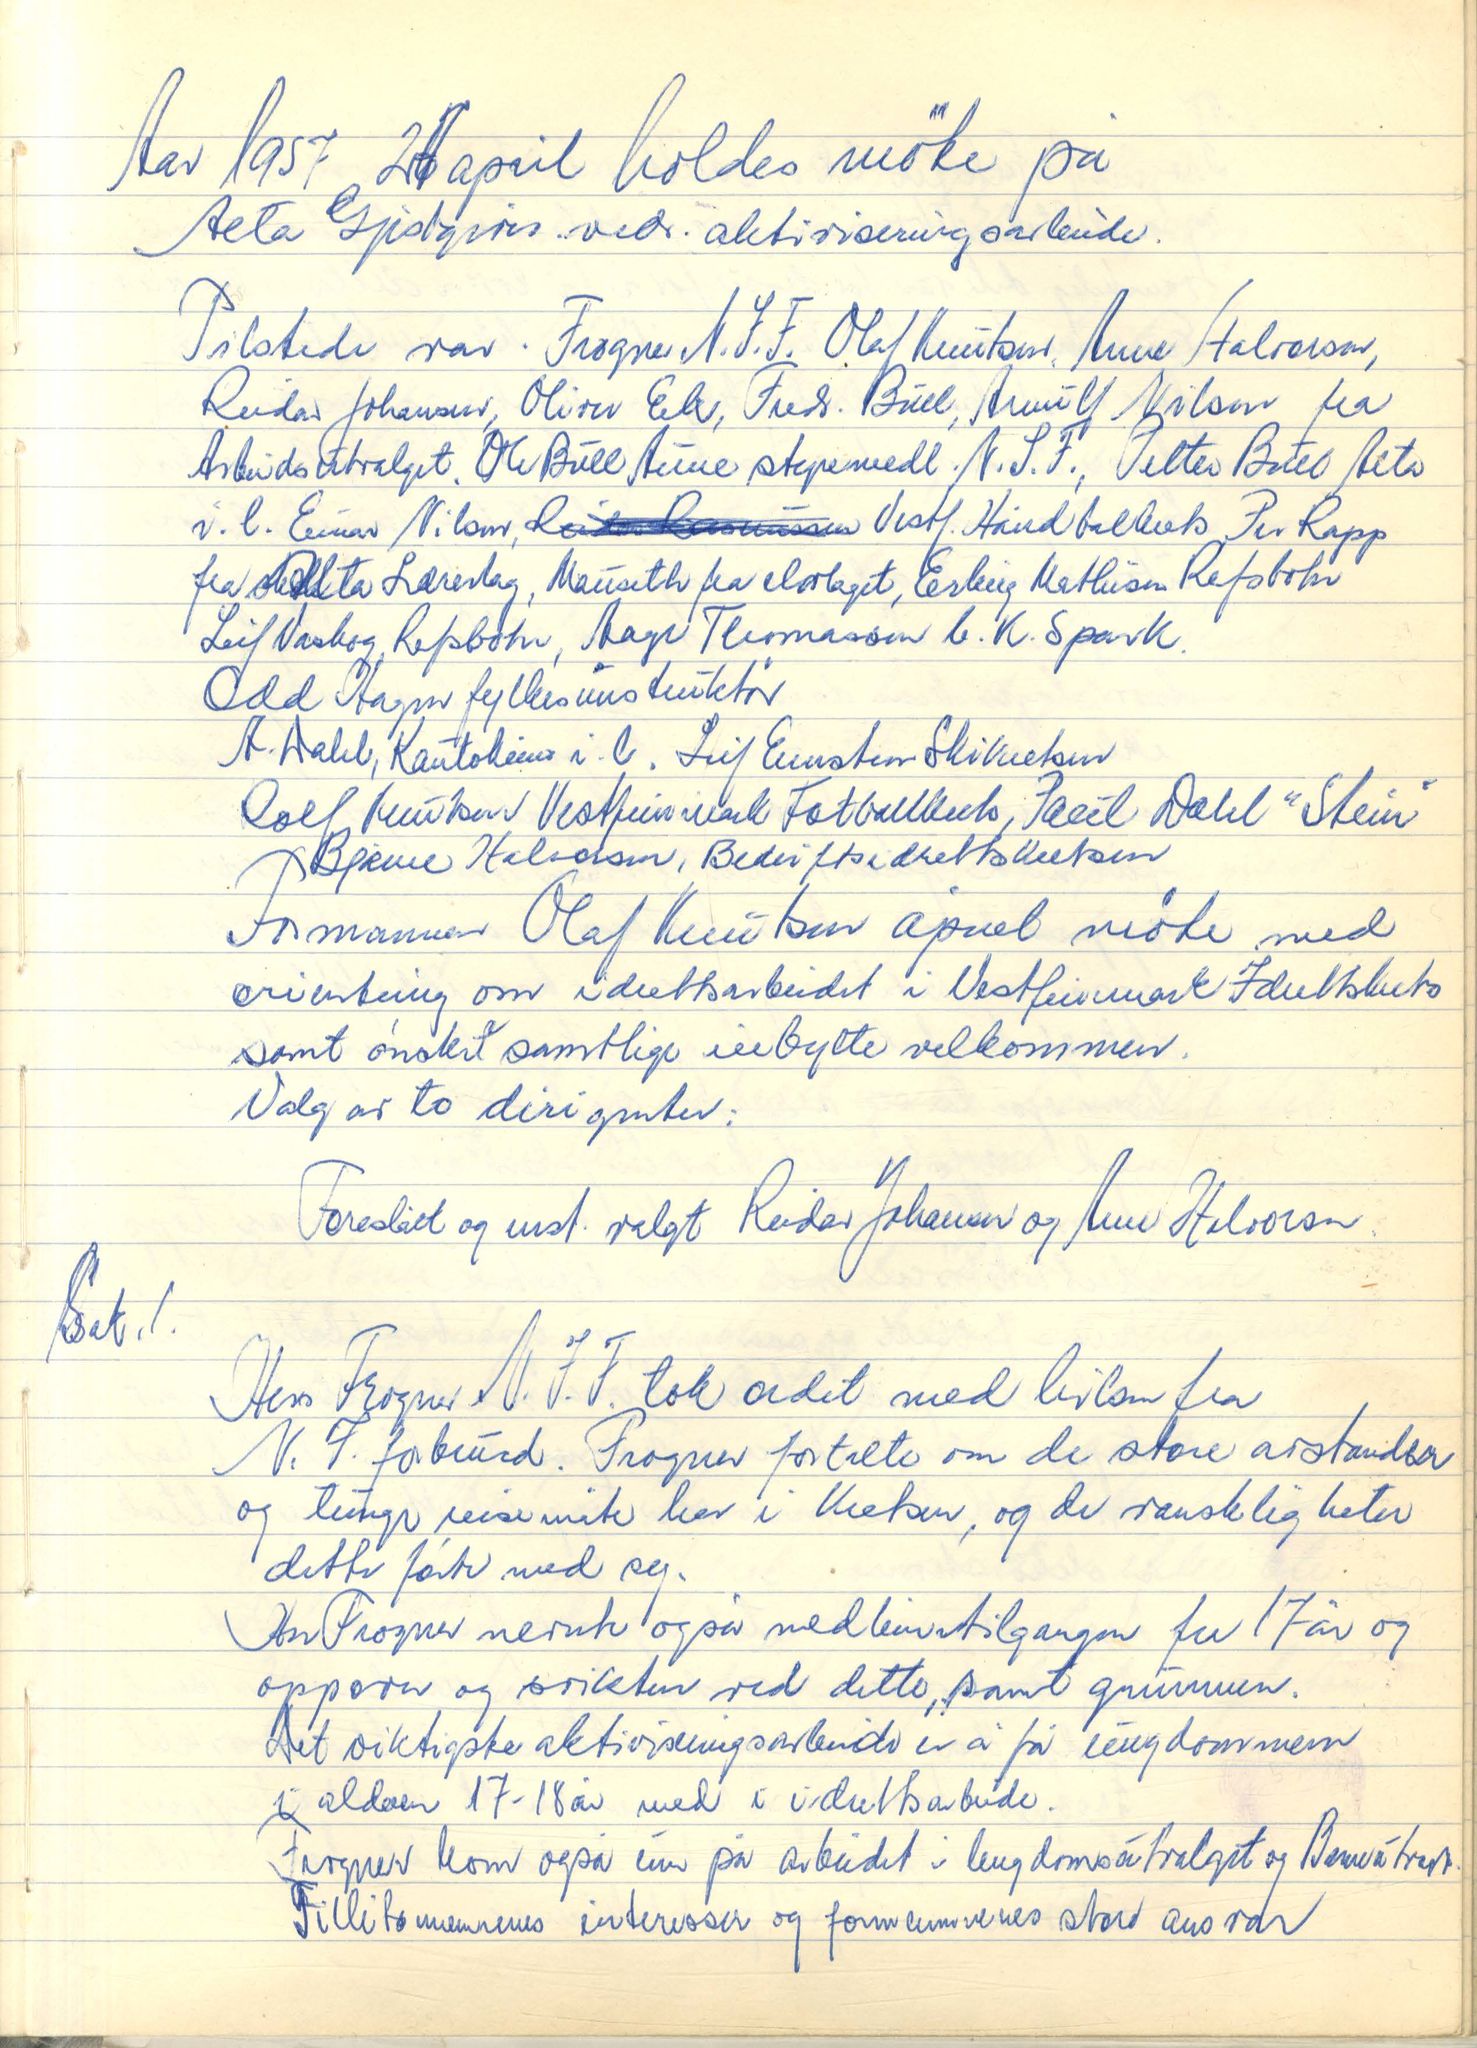 Aar 1957 april holdes möte på
Alta Gjestgiveri vedr. aktiviseringsarbeide.
Tilstede var. Frogner N.I.F. Olaf Knutsen, Arne Halvorsen,
Reidar Johansen, Oliver Eek, Fredr. Bull, Arnulf Nilsen fra
Arbeidsutvalget. Ole Bull Aune styremedl. N.S.F., Petter Bull Alta
i.l. Einar Nilsen, Vestf. Håndballkrets, Per Rapp
fra Alta Lærerlag, Mauseth fra elvelaget, Erling Mathisen Refsbotn
Leif Vasbog, Refsbotn, Aage Thomassen b.K. Spark.
Odd Hagen fylkesinstruktör
A. Dahl, Kautokeino i.l. Leif Evensten Skikretsen
Rolf Knutsen Vestfinnmark Fotballkrets, Paul Dahl "Stein"
Bjarne Halvorsen, Bedriftsidrettskretsen
Formannen Olaf Knutsen åpnet möte med
orientering om idrettsarbeidet i Vestfinnmark Idrettskrets
samt ønsket samtlige utbytte velkommen.
Valg av to dirigenter:
Foreslått og enst. valgt Reidar Johansen og Arne Halvorsen.
Sak. 1.
Herr Frogner N.I.F. tok ordet med hilsen fra
N. I. forbund. Frogner fortalte om de store avstander
og tunge reisemåte her i kretsen, og de vanskligheter
dette førte med seg.
Frogner nevnte også medlemstilgangen fra 17 år og
oppover og svikten ved dette, samt grunnen.
Det viktigste aktiviseringsarbeide er å få ungdommen
i alderen 17-18 år med i idrettsarbeide.
Frogner kom også inn på arbeidet i Ungdomsutvalget og
Tillitsmennenes interesser og formennenes store ansvar